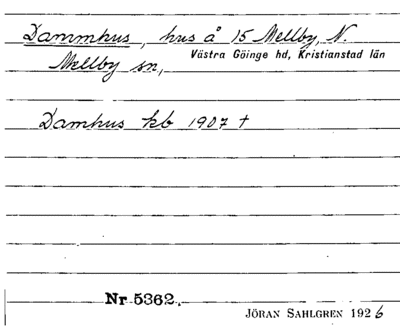 Dammhus, hus å 15 Mellby, N.
Västra Göinge hd, Kristianstad län
Mellby sn,
Damhus kb 1907 †
Nr 5362.
JÖRAN SAHLGREN 1926